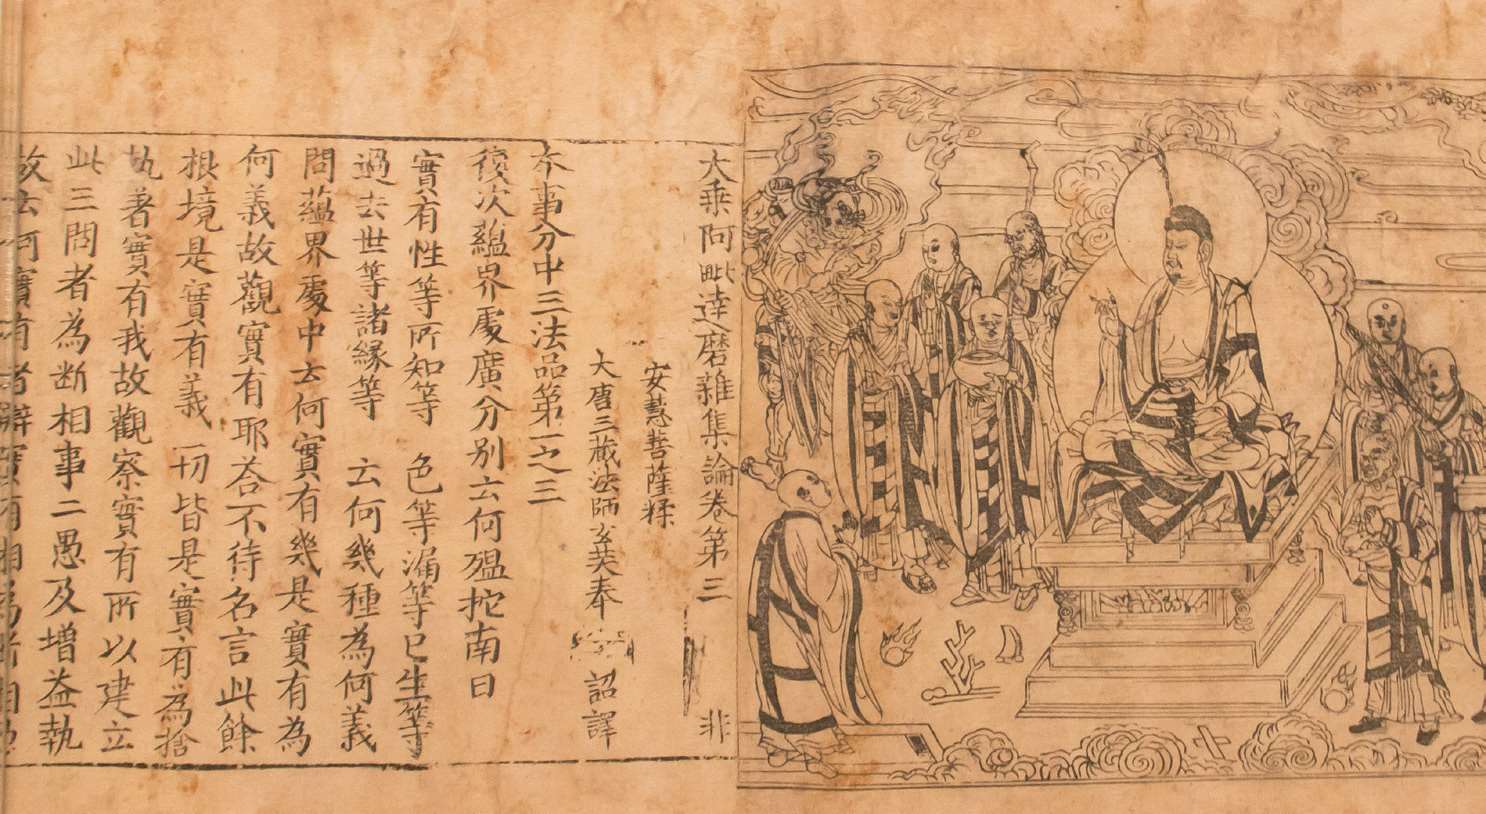 大乘阿毗達磨雜集論卷第三 非
安慧菩薩糅
大唐三藏法師玄奘奉 詔譯
本事分中三法品第一之三
復次蘊界處廣分別云何嗢拕南曰
實有性等所知等 色等漏等已生等
過去世等諸緣等 云何幾種為何義
問蘊界處中云何實有幾是實有為
何義故觀實有耶荅不待名言此餘
根境是實有義一切皆是實有為捨
執著實有我故觀察實有所以建立
此三問者為斷相事二愚及增益執
故云何實有者辯實有相為斷相愚